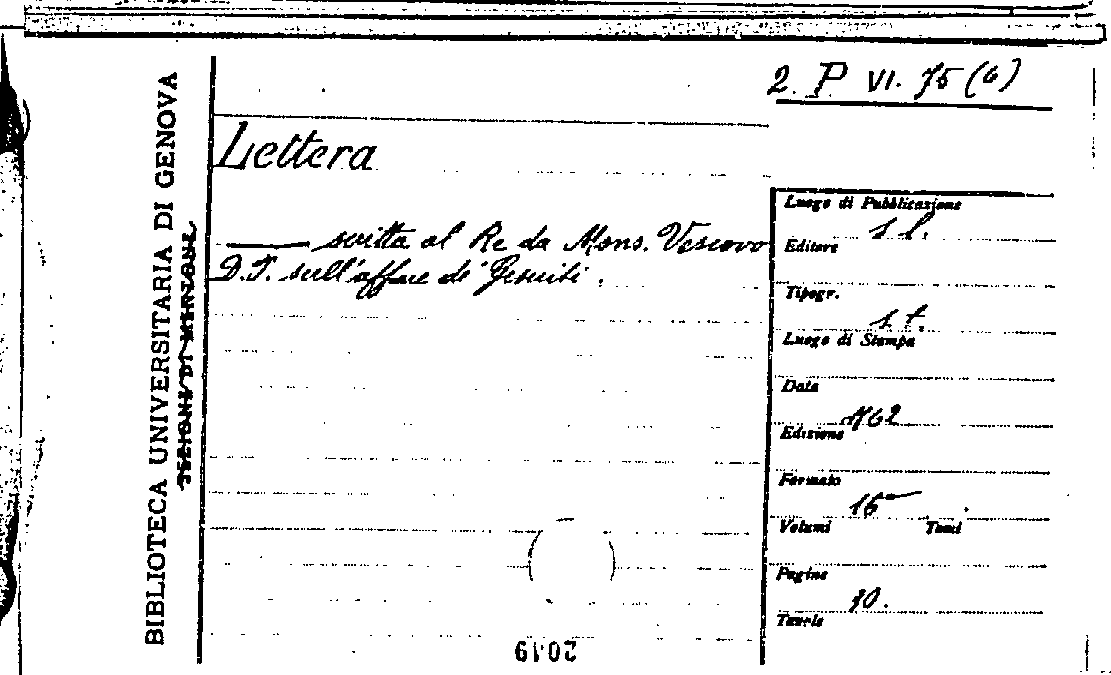 2. P VI. 75 (6)
Lettera
scritta al Re da Mons. Vescovo
D. F. sull'affare de' Gesuiti.
Luogo di Pubblicazione
s. l.
Editore
Tipogr.
s. t.
Luogo di Stampa
Data
1762
Edizione
Formato
16°
Volumi Tomi
Pagine
10.
Tavole
BIBLIOTECA UNIVERSITARIA DI GENOVA
2049